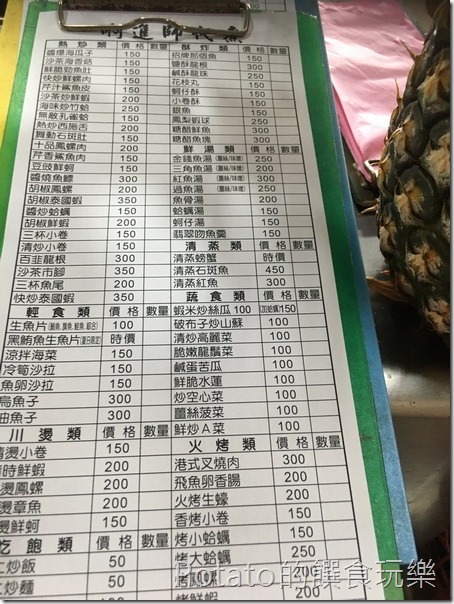 熱炒類 價格 數量
醬爆海瓜子 150
沙茶海香菇 150
鮮脆勁魚肚 150
快炒鮮螺肉 150
芹汁鯊魚皮 150
沙茶炒鮮蝦 200
海味炒竹蛤 250
無敵孔雀蛤 150
熱炒西施舌 200
舞動石斑肚 150
十品鳳螺肉 200
芹香鯊魚肉 150
豆豉鮮蚵 150
醬燒魚鱧 300
胡椒鳳螺 200
胡椒泰國蝦 350
醬炒蛤蠣 150
胡椒鮮蝦 200
三杯小卷 150
清炒小卷 150
百韭龍根 300
沙茶市腳 350
三杯魚尾 200
快炒泰國蝦 350
輕食類 價格 數量
生魚片 100
黑鮪魚生魚片 時價
涼拌海菜 150
冷筍沙拉 150
魚卵沙拉 150
烏魚子 300
油魚子 300
川燙類 價格 數量
清燙小卷 150
時鮮蝦 200
燙鳳螺 200
燙章魚 200
燙鮮蚵 150
吃飽類 價格 數量
炒飯 50
炒麵 50
酥炸類 價格 數量
招牌那個魚 150
鹽酥龍根 300
鹹酥龍珠 250
花枝丸 150
蚵仔酥 150
小卷酥 150
銀魚 150
鳳梨蝦球 200
糖醋鮮魚 300
糖醋魚塊 300
鮮湯類 價格 數量
金錢魚湯(薑絲/味噌) 250
三角魚湯(薑絲/味噌) 200
紅魚湯(薑絲/味噌) 300
過魚湯(薑絲/味噌) 250
魚骨湯 200
蛤蠣湯 150
蚵仔湯 150
翡翠吻魚羹 150
清蒸類 價格 數量
清蒸螃蟹 時價
清蒸石斑魚 450
清蒸紅魚 300
蔬食類 價格 數量
蝦米炒絲瓜 100 (加蛤蠣)150
破布子炒山蘇 100
清炒高麗菜 100
脆嫩龍鬚菜 100
鹹蛋苦瓜 100
鮮脆水蓮 100
炒空心菜 100
薑絲菠菜 100
鮮炒A菜 100
火烤類 價格 數量
港式叉燒肉 300
飛魚卵香腸 200
火烤生蠔 200
香烤小卷 150
烤小蛤蠣 150
烤大蛤蠣 250
烤鮮蝦 200
Potato的饌食玩樂